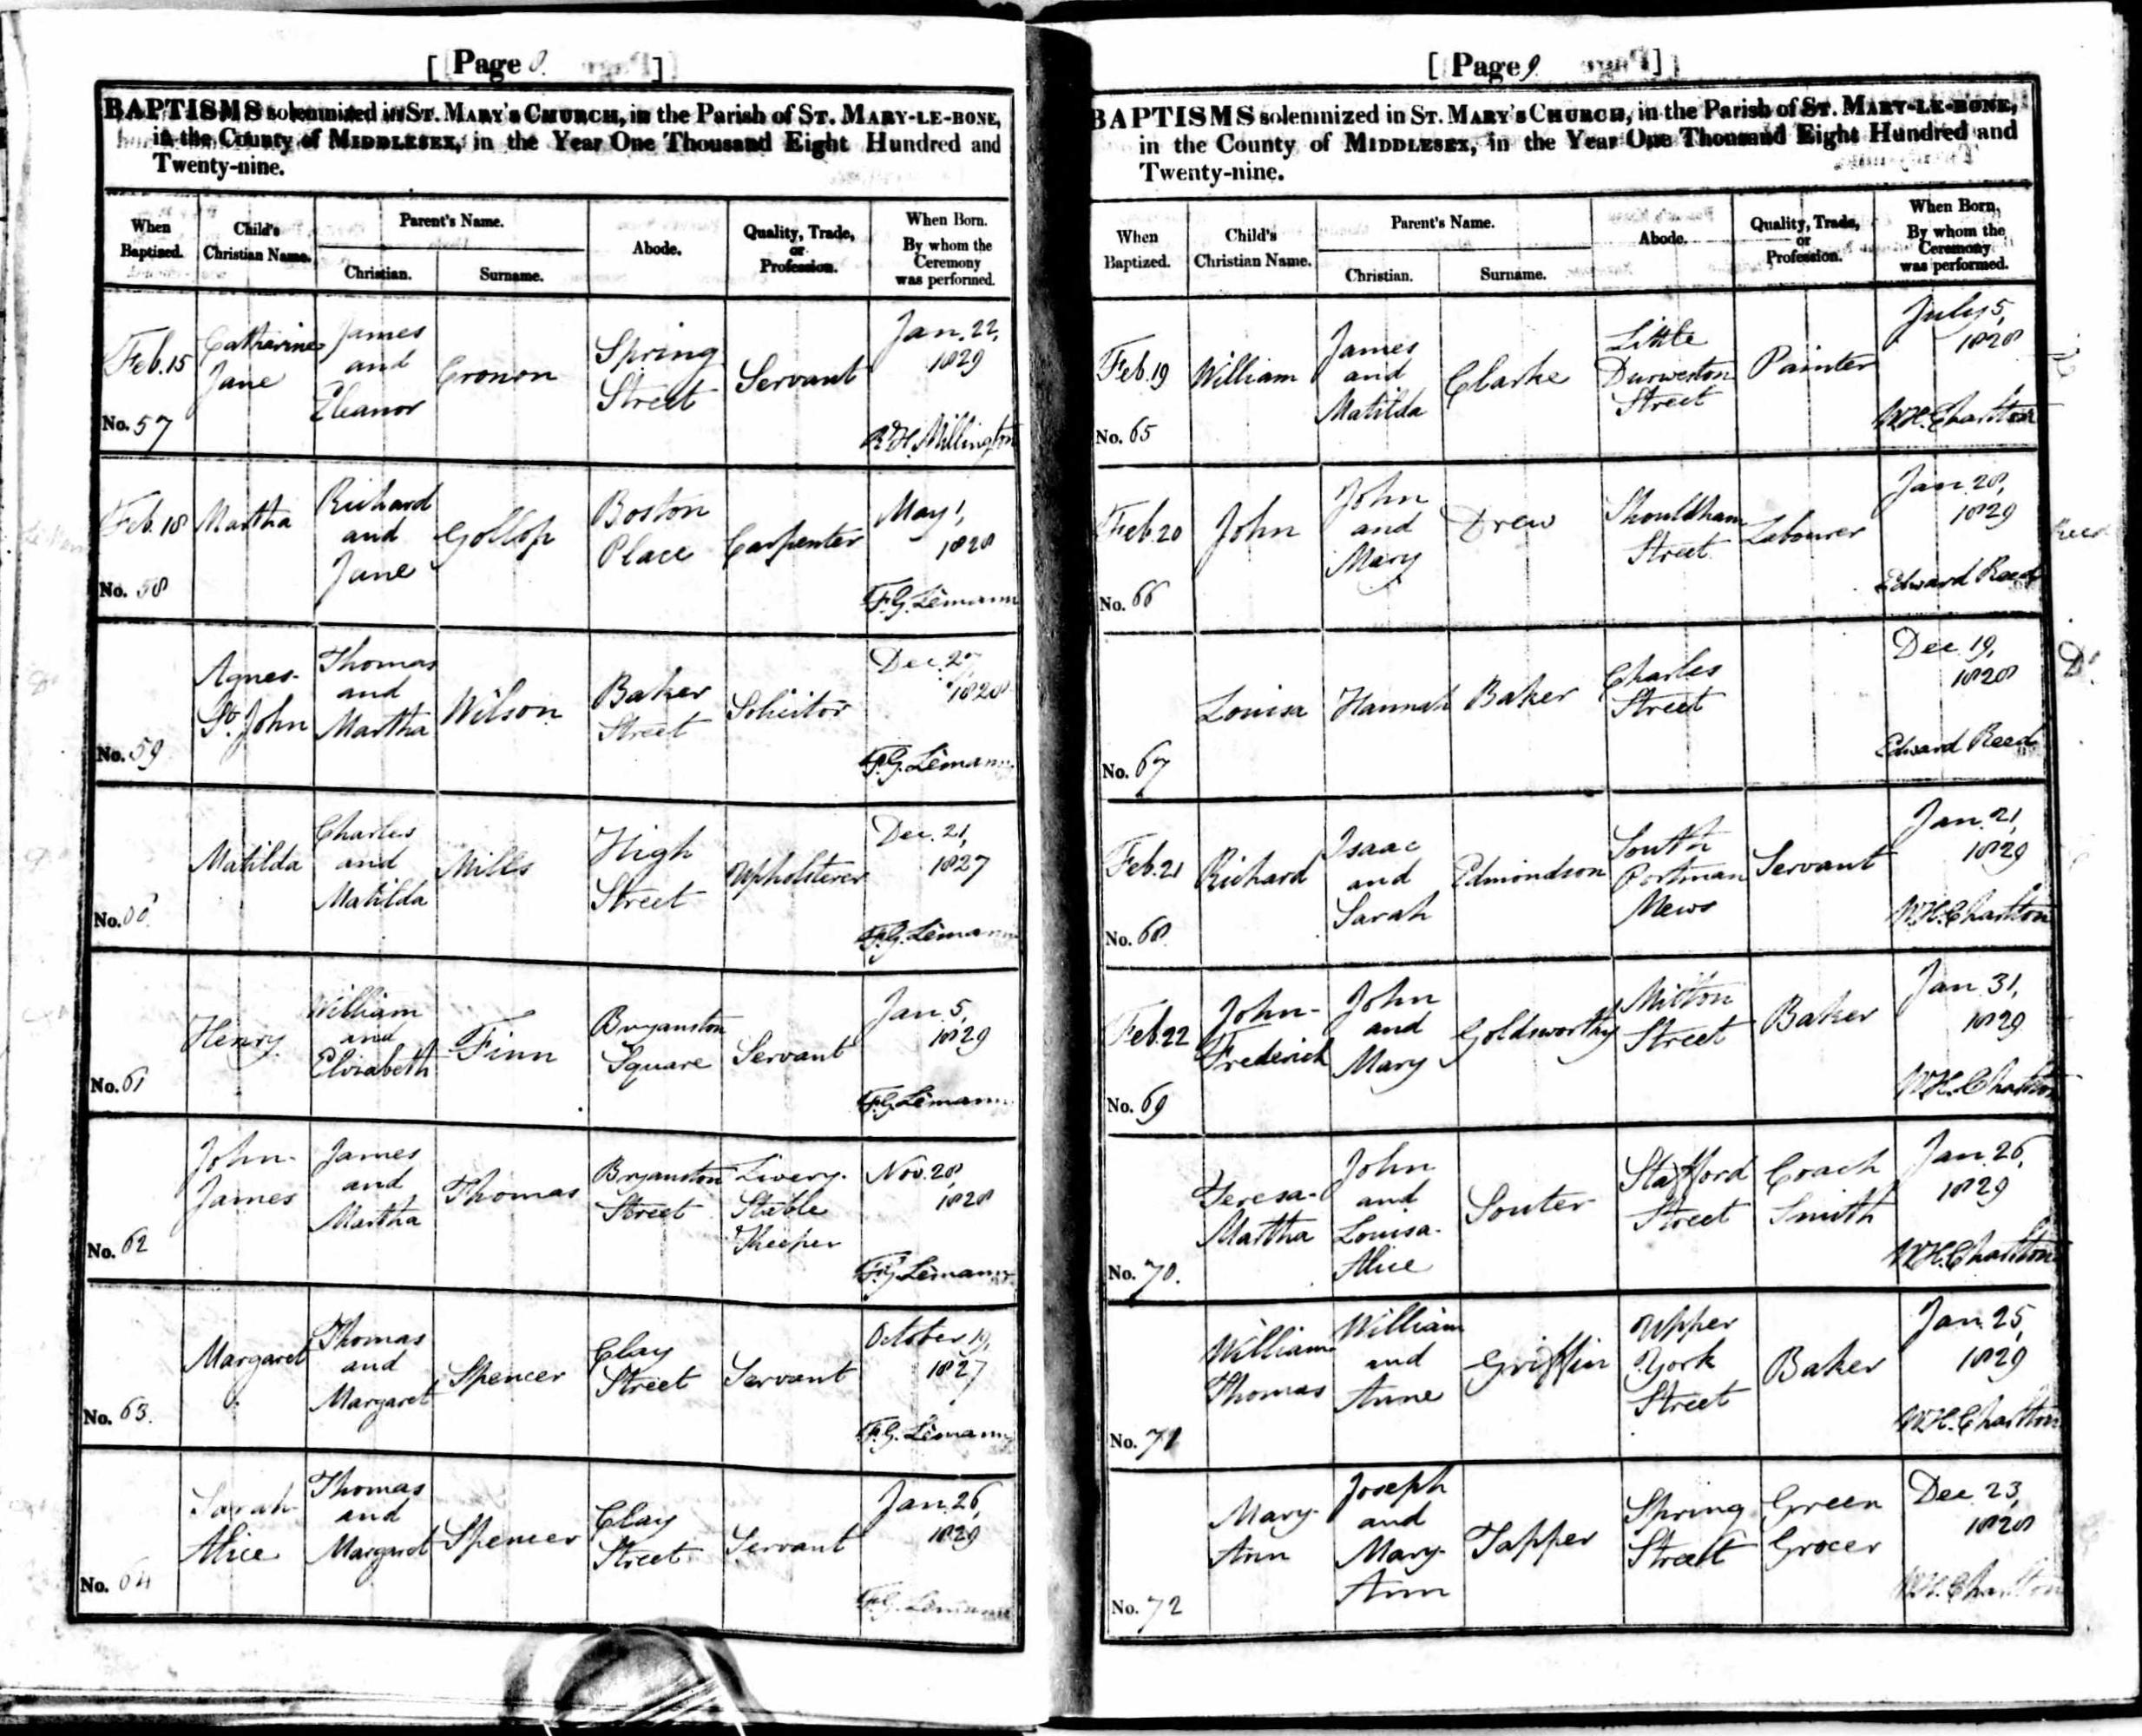 [ Page 8. ]
BAPTISMS solemnized in ST. MARY'S CHURCH, in the Parish of ST. MARY-LE-BONE,
in the County of MIDDLESEX, in the Year One Thousand Eight Hundred and
Twenty-nine.
When Baptized.
Child's Christian Name.
Parent's Name.
Christian.
Surname.
Abode.
Quality, Trade, or Profession.
When Born. By whom the Ceremony was performed.
Feb. 15
No. 57
Catharine
Jane
James
and
Eleanor
Cronon
Spring
Street
Servant
Jan. 22,
1829
Millington
Feb. 18
No. 58
Martha
Richard
and
Jane
Gollop
Boston
Place
Carpenter
May 1,
1828
F.G. Lemann
No. 59
Agnes-
St. John
Thomas
and
Martha
Wilson
Baker
Street
Solicitor
Dec. 27
1828
F.G. Lemann
No. 60
Matilda
Charles
and
Matilda
Mills
High
Street
Upholsterer
Dec. 21,
1827
F.G. Lemann
No. 61
Henry
William
and
Elizabeth
Finn
Bryanston
Square
Servant
Jan. 5,
1829
F.G. Lemann
No. 62
John-
James
James
and
Martha
Thomas
Bryanston
Street
Livery-
Stable
Keeper
Nov. 28,
1828
F.G. Lemann
No. 63.
Margaret
Thomas
and
Margaret
Spencer
Clay
Street
Servant
October 19,
1827
F.G. Lemann
No. 64
Sarah-
Alice
Thomas
and
Margaret
Spencer
Clay
Street
Servant
Jan. 26,
1829
F.G. Lemann
[ Page 9. ]
BAPTISMS solemnized in ST. MARY'S CHURCH, in the Parish of ST. MARY-LE-BONE,
in the County of MIDDLESEX, in the Year One Thousand Eight Hundred and
Twenty-nine.
When Baptized.
Child's Christian Name.
Parent's Name.
Christian.
Surname.
Abode.
Quality, Trade, or Profession.
When Born, By whom the Ceremony was performed.
Feb. 19
No. 65
William
James
and
Matilda
Clarke
Little
Durweston
Street
Painter
July 5,
1828
W.H. Charlton
Feb. 20
No. 66
John
John
and
Mary
Drew
Shouldham
Street
Labourer
Jan. 28,
1829
Edward Reed
No. 67
Louisa
Hannah
Baker
Charles
Street
Dec. 19,
1828
Edward Reed
Do.
Feb. 21
No. 68
Richard
Isaac
and
Sarah
Edmondson
South
Portman
Mews
Servant
Jan. 21,
1829
W.H. Charlton
Feb. 22
No. 69
John-
Frederick
John
and
Mary
Goldsworthy
Milton
Street
Baker
Jan. 31,
1829
W.H. Charlton
No. 70.
Teresa-
Martha
John
and
Louisa-
Alice
Souter
Stafford
Street
Coach
Smith
Jan. 26,
1829
W.H. Charlton
No. 71
William
Thomas
William
and
Anne
Griffin
Upper
York
Street
Baker
Jan. 25,
1829
W.H. Charlton
No. 72
Mary-
Ann
Joseph
and
Mary-
Ann
Tapper
Spring
Street
Green
Grocer
Dec. 23,
1828
W.H. Charlton